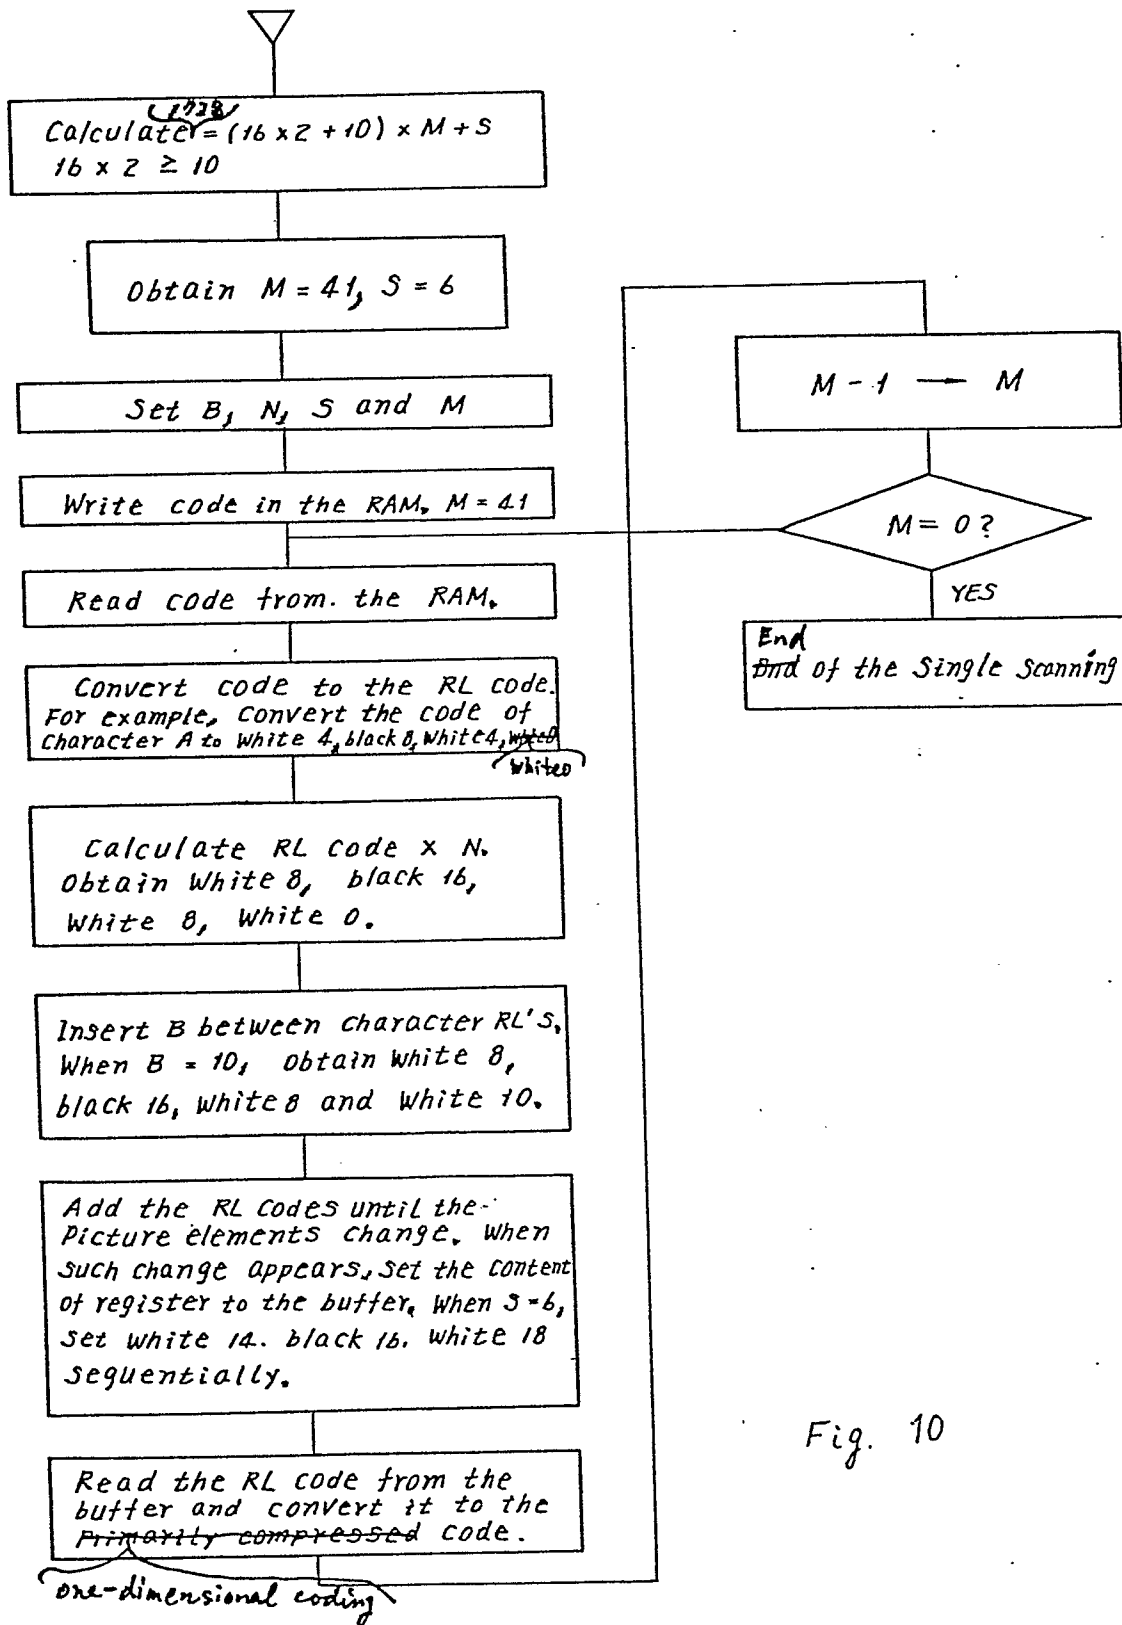 1728
Calculate = (16 x 2 + 10) x M + S
16 x 2 ≥ 10
Obtain M = 41, S = 6
Set B, N, S and M
Write code in the RAM. M = 41
Read code from. the RAM.
Convert code to the RL code.
For example, Convert the code of
Character A to White 4, black 8, White 4, white0
white0
Calculate RL Code x N.
Obtain White 8, black 16,
White 8, White 0.
Insert B between Character RL's.
When B = 10, Obtain White 8,
black 16, White 8 and White 10.
Add the RL Codes until the
Picture elements change. When
such change appears, set the content
of register to the buffer. When S = 6,
set White 14. black 16. White 18
sequentially.
Read the RL code from the
buffer and convert it to the
Primarily compressed code.
one-dimensional coding
M - 1 → M
M = 0 ?
YES
End
End of the Single Scanning
Fig. 10